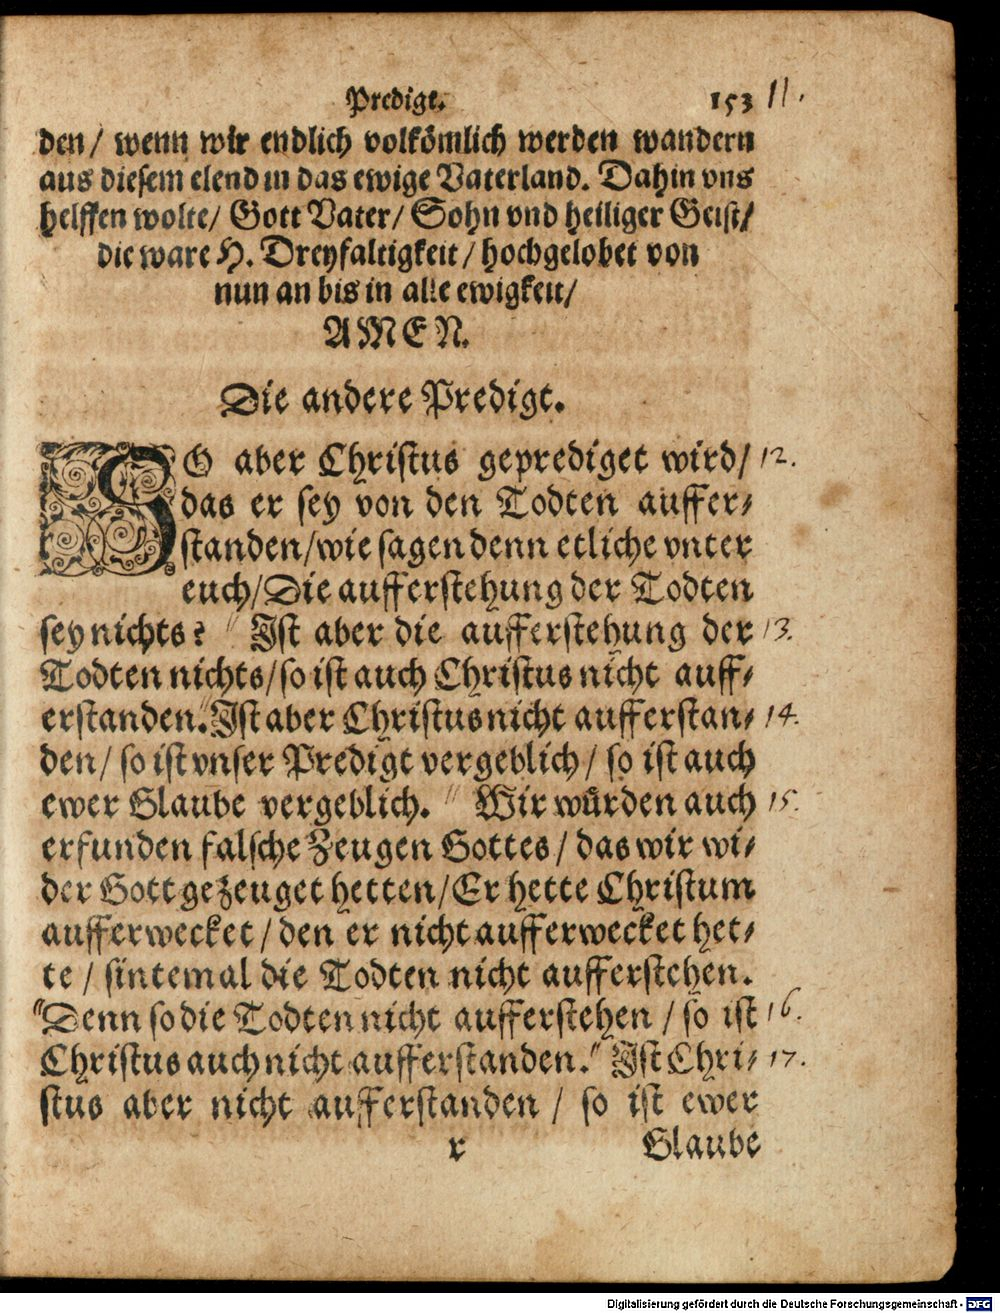 Predigt. 153 11.
den/ wenn wir endlich volkömlich werden wandern
aus diesem elend in das ewige Vaterland. Dahin vns
helffen wolte/ Gott Vater/ Sohn vnd heiliger Geist/
die ware H. Dreyfaltigkeit/ hochgelobet von
nun an bis in alle ewigkeit/
AMEN.
Die andere Predigt.
SO aber Christus geprediget wird/ 12.
das er sey von den Todten auffer-
standen/ wie sagen denn etliche vnter
euch/ Die aufferstehung der Todten
sey nichts? " Ist aber die aufferstehung der 13.
Todten nichts/ so ist auch Christus nicht auff-
erstanden." Ist aber Christus nicht aufferstan- 14.
den/ so ist vnser Predigt vergeblich/ so ist auch
ewer Glaube vergeblich. " Wir würden auch 15.
erfunden falsche Zeugen Gottes/ das wir wi-
der Gott gezeuget hetten/ Er hette Christum
aufferwecket/ den er nicht aufferwecket het-
te/ sintemal die Todten nicht aufferstehen.
"Denn so die Todten nicht aufferstehen/ so ist 16.
Christus auch nicht aufferstanden." Ist Chri- 17.
stus aber nicht aufferstanden/ so ist ewer
r Glaube
Digitalisierung gefördert durch die Deutsche Forschungsgemeinschaft - DFG